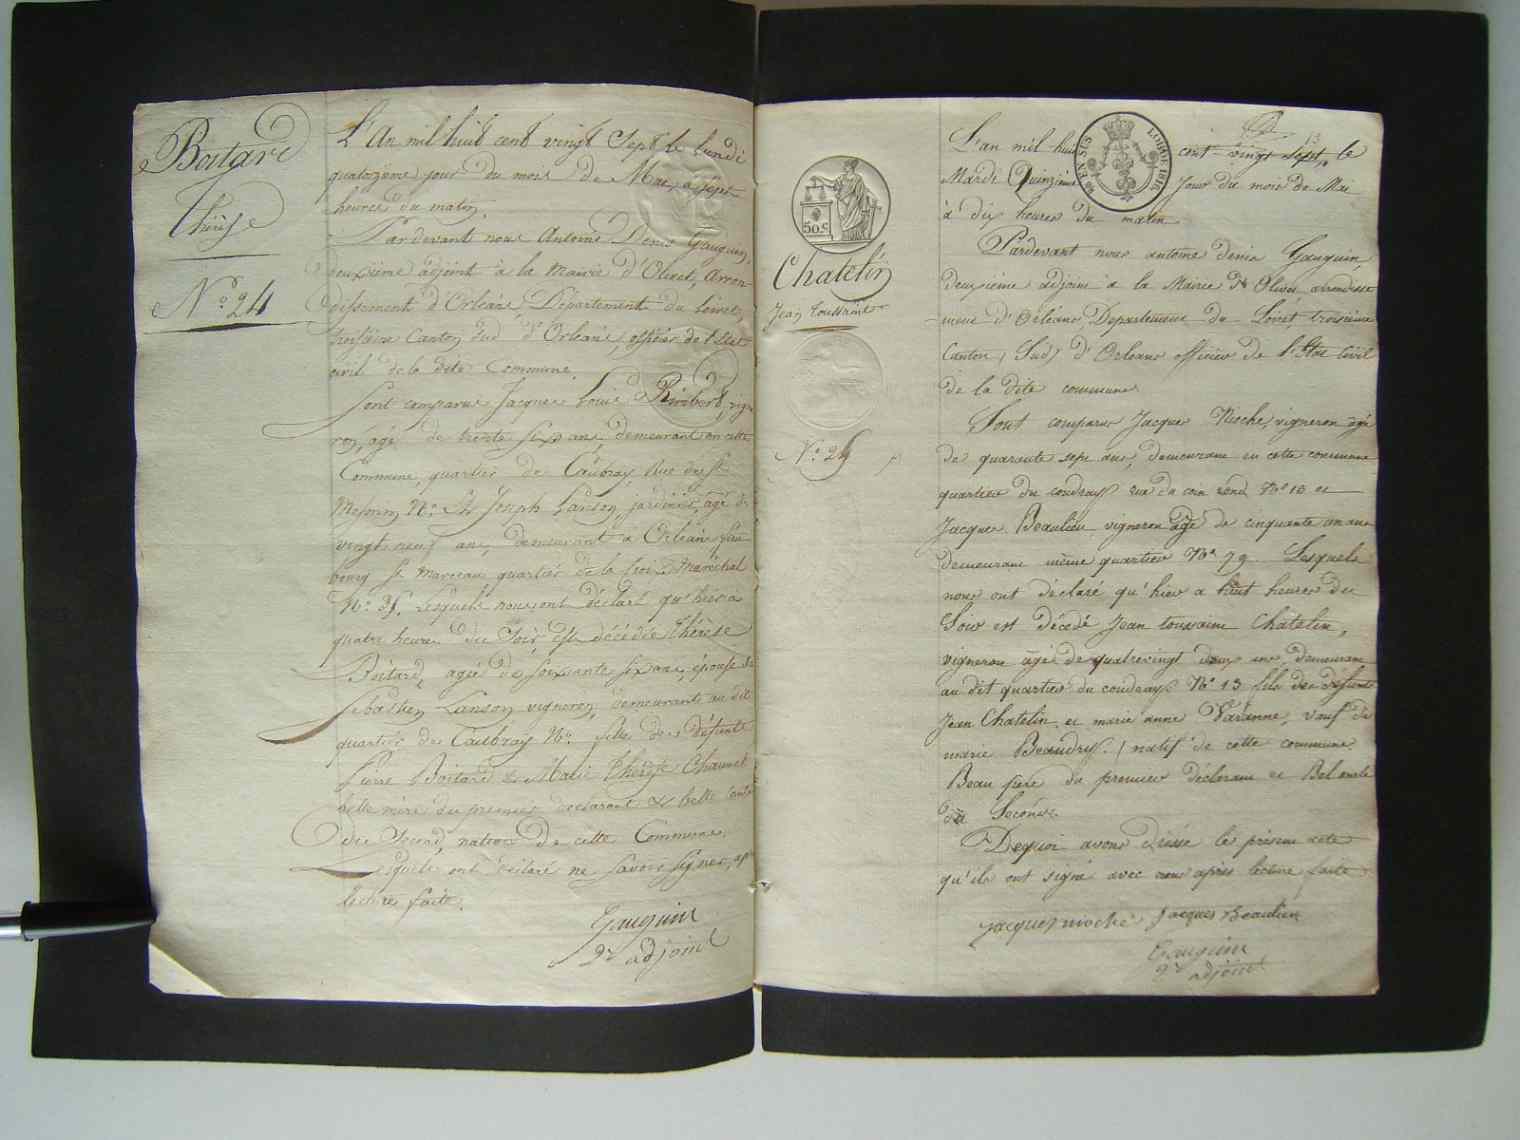 Boitard
Thérèse
N.º 24
L'An mil huit cent vingt Sept le lundi
quatorzeme jour du mois de Mai, a sept
heures du matin.
Pardevant nous Antoine Denis Gauguin,
deuxième adjoint à la Mairie d'Olivet, Arron-
dissement d'Orléans, Département du loiret,
troisième Canton Sud d'Orléans, officier de l'Etat
civil de la dite Commune.
Sont comparus Jacques Louis Rimbert, vigne
ron, agé de trente six ans, demeurant en cette
Commune, quartier de Caubray, Rue
N.º Joseph Lanson, jardinier, agé de
vingt neuf ans, demeurant à Orléans faux
bourg St Marceau quartier de la Croix Maréchal
N.º Lesquels nous ont déclaré qu'hier a
quatre heures du Soir, Est décédée thérèse
Boitard, agée de soixante six ans, épouse de
Sébastien Lanson vigneron, demeurante au dit
quartier de Caubray N.º fille des défunts
Pierre Boitard & Marie thérèse Chaunet
belle mère du premier déclarant & belle tante
du Second, native de cette Commune.
Lesquels ont déclaré ne savoir signer, après
lecture faite.
Gauguin
2e adjoint
13
50.C
Chatelin
Jean toussaint
N.º 25
L'an mil huit cent vingt sept, le
Mardi Quinzième Jour du mois de Mai
à dix heures du matin
Pardevant nous antoine denis Gauguin,
deuxième adjoint à la Mairie d'Olivet arrondisse
ment d'Orléans, Departement du Loiret, troisième
Canton, Sud, d'Orléans officier de l'Etat Civil
de la dite commune
Sont comparus Jacque Rioche, vigneron agé
de quarante sept ans, demeurant en cette commune
quartier du coudray rue du coin rond N.º 10 et
Jacques Beaulieu vigneron âgé de cinquante un ans
demeurant même quartier N.º 79. Lesquels
nous ont déclaré qu'hier a huit heures du
Soir est décédé Jean toussaint Chatelin,
vigneron âgé de quatrevingt deux ans, demeurant
au dit quartier du coudray N.º 13 fils de défunts
Jean Chatelin et marie anne Varanne, veuf de
marie Beaudry. natif de cette commune.
Beau père du premier déclarant et Bel oncle
du Second.
Dequoi avons dressé le présent acte
qu'ils ont signé avec nous après lecture faite
jacques rioché Jacques Beaulieu
Gauguin
2e adjoint